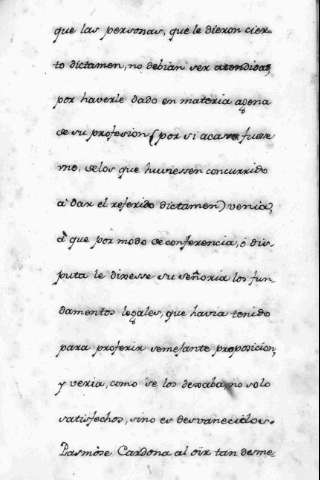 que las personas, que le dieron cier-
to dictamen, no debian ser atendidas,
por haverle dado en materia agena
de su profesion (por si acaso fuesse
mo, de los que huviessen concurrido
à dar el referido dictamen) venia,
à que por modo de conferencia, ò dis-
puta le dixesse su señoria los fun-
damentos legales, que havia tenido
para proferir semejante proposicion,
y veria, como se los dexaba, no solo
satisfechos, sino es desvanecidos.
Pasmòse Cardona al oìr tan desme-